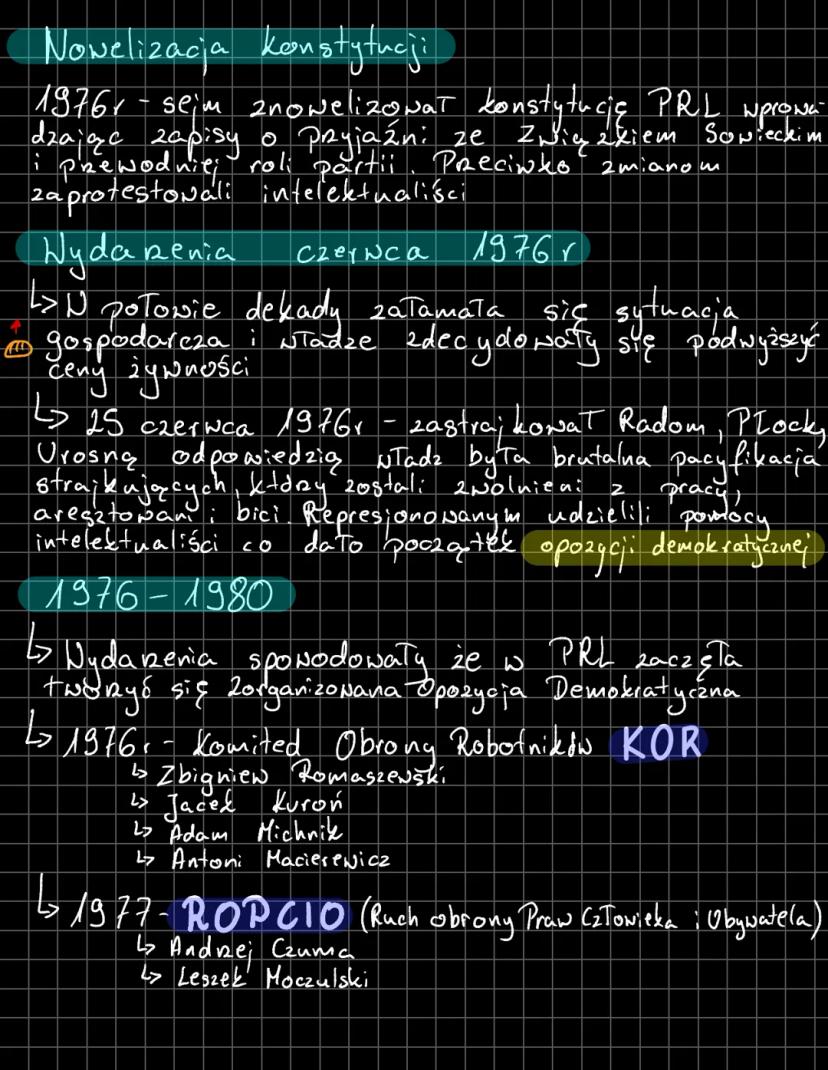 Nowelizacja konstytucji
1976r - sejm znowelizował konstytucję PRL wprowa-
dzając zapisy o przyjaźni ze Związkiem Sowieckim
i przewodniej roli partii. Przeciwko zmianom
zaprotestowali intelektualiści
Wydarzenia czerwca 1976 r
↳ W połowie dekady załamała się sytuacja
gospodarcza i władze zdecydowały się podwyższyć
ceny żywności
↳ 25 czerwca 1976r - zastrajkował Radom, Płock,
Ursus, odpowiedzią władz była brutalna pacyfikacja
strajkujących, którzy zostali zwolnieni z pracy,
aresztowani i bici. Represjonowanym udzielili pomocy
intelektualiści co dało początek opozycji demokratycznej
1976-1980
↳ Wydarzenia spowodowały że w PRL zaczęła
tworzyć się Zorganizowana Opozycja Demokratyczna
↳ 1976r - Komited Obrony Robotników KOR
↳ Zbigniew Romaszewski
↳ Jacek Kuroń
↳ Adam Michnik
↳ Antoni Macierewicz
↳ 1977 - ROPCIO (Ruch obrony Praw Człowieka i Obywatela)
↳ Andrzej Czuma
↳ Leszek Moczulski